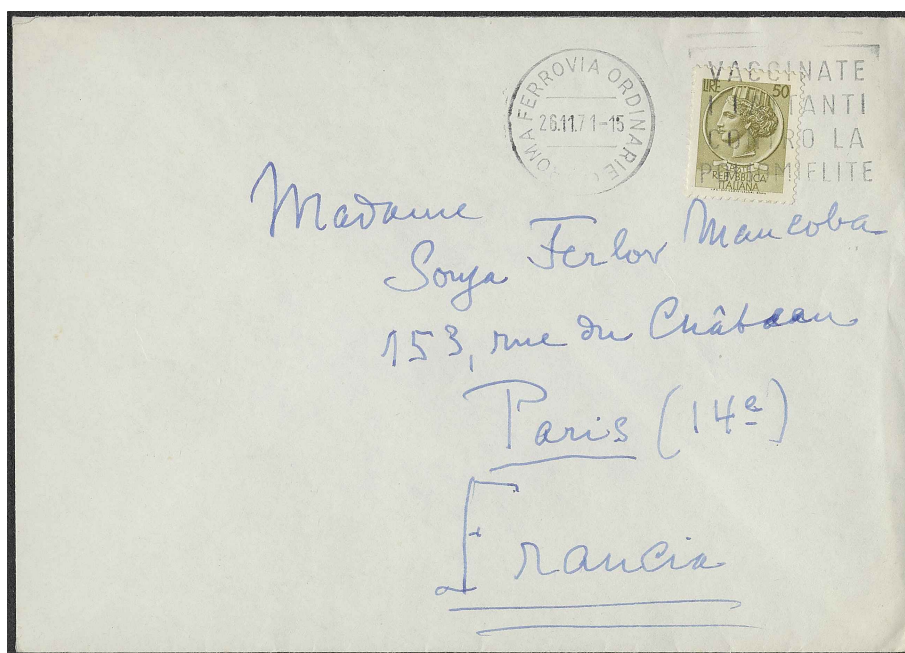 ROMA FERROVIA ORDINARIE
26.11.71-15
VACCINATE
CONTRO LA
LIRE 50
REPVBBLICA
ITALIANA
Madame
Sonja Ferlov Mancoba
153, rue du Château
Paris (14e)
Francia